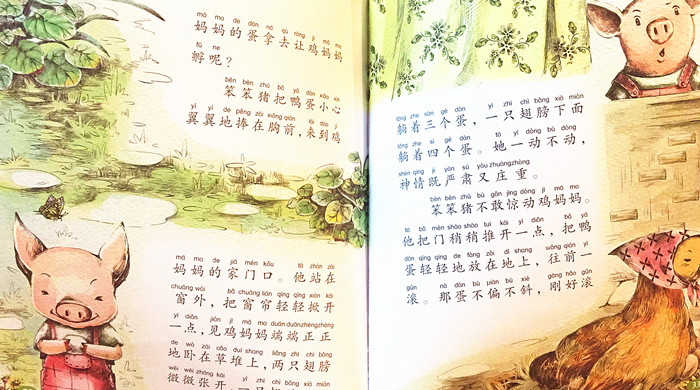 mā ma de dàn ná qù ràng jī mā ma
妈妈的蛋拿去让鸡妈妈
fū ne
孵呢？
bèn bèn zhū bǎ yā dàn xiǎo xīn
笨笨猪把鸭蛋小心
yì yì de pěng zài xiōng qián lái dào jī
翼翼地捧在胸前，来到鸡
mā ma de jiā mén kǒu tā zhàn zài
妈妈的家门口。他站在
chuāng wài bǎ chuāng lián qīng qīng xiān kāi
窗外，把窗帘轻轻掀开
yì diǎn jiàn jī mā ma duān duān zhèng zhèng
一点，见鸡妈妈端端正正
de wò zài cǎo duī shang liǎng zhī chì bǎng
地卧在草堆上，两只翅膀
wēi wēi zhāng kāi
微微张开
tǎng zhe sān gè dàn yì zhī chì bǎng xià miàn
躺着三个蛋，一只翅膀下面
tǎng zhe sì gè dàn tā yí dòng bú dòng
躺着四个蛋。她一动不动，
shén qíng jì yán sù yòu zhuāng zhòng
神情既严肃又庄重。
bèn bèn zhū bù gǎn jīng dòng jī mā ma
笨笨猪不敢惊动鸡妈妈。
tā bǎ mén shāo shāo tuī kāi yì diǎn bǎ yā
他把门稍稍推开一点，把鸭
dàn qīng qīng de fàng zài dì shang wǎng qián yì
蛋轻轻地放在地上，往前一
gǔn nà dàn bù piān bù xié gāng hǎo gǔn
滚。那蛋不偏不斜，刚好滚